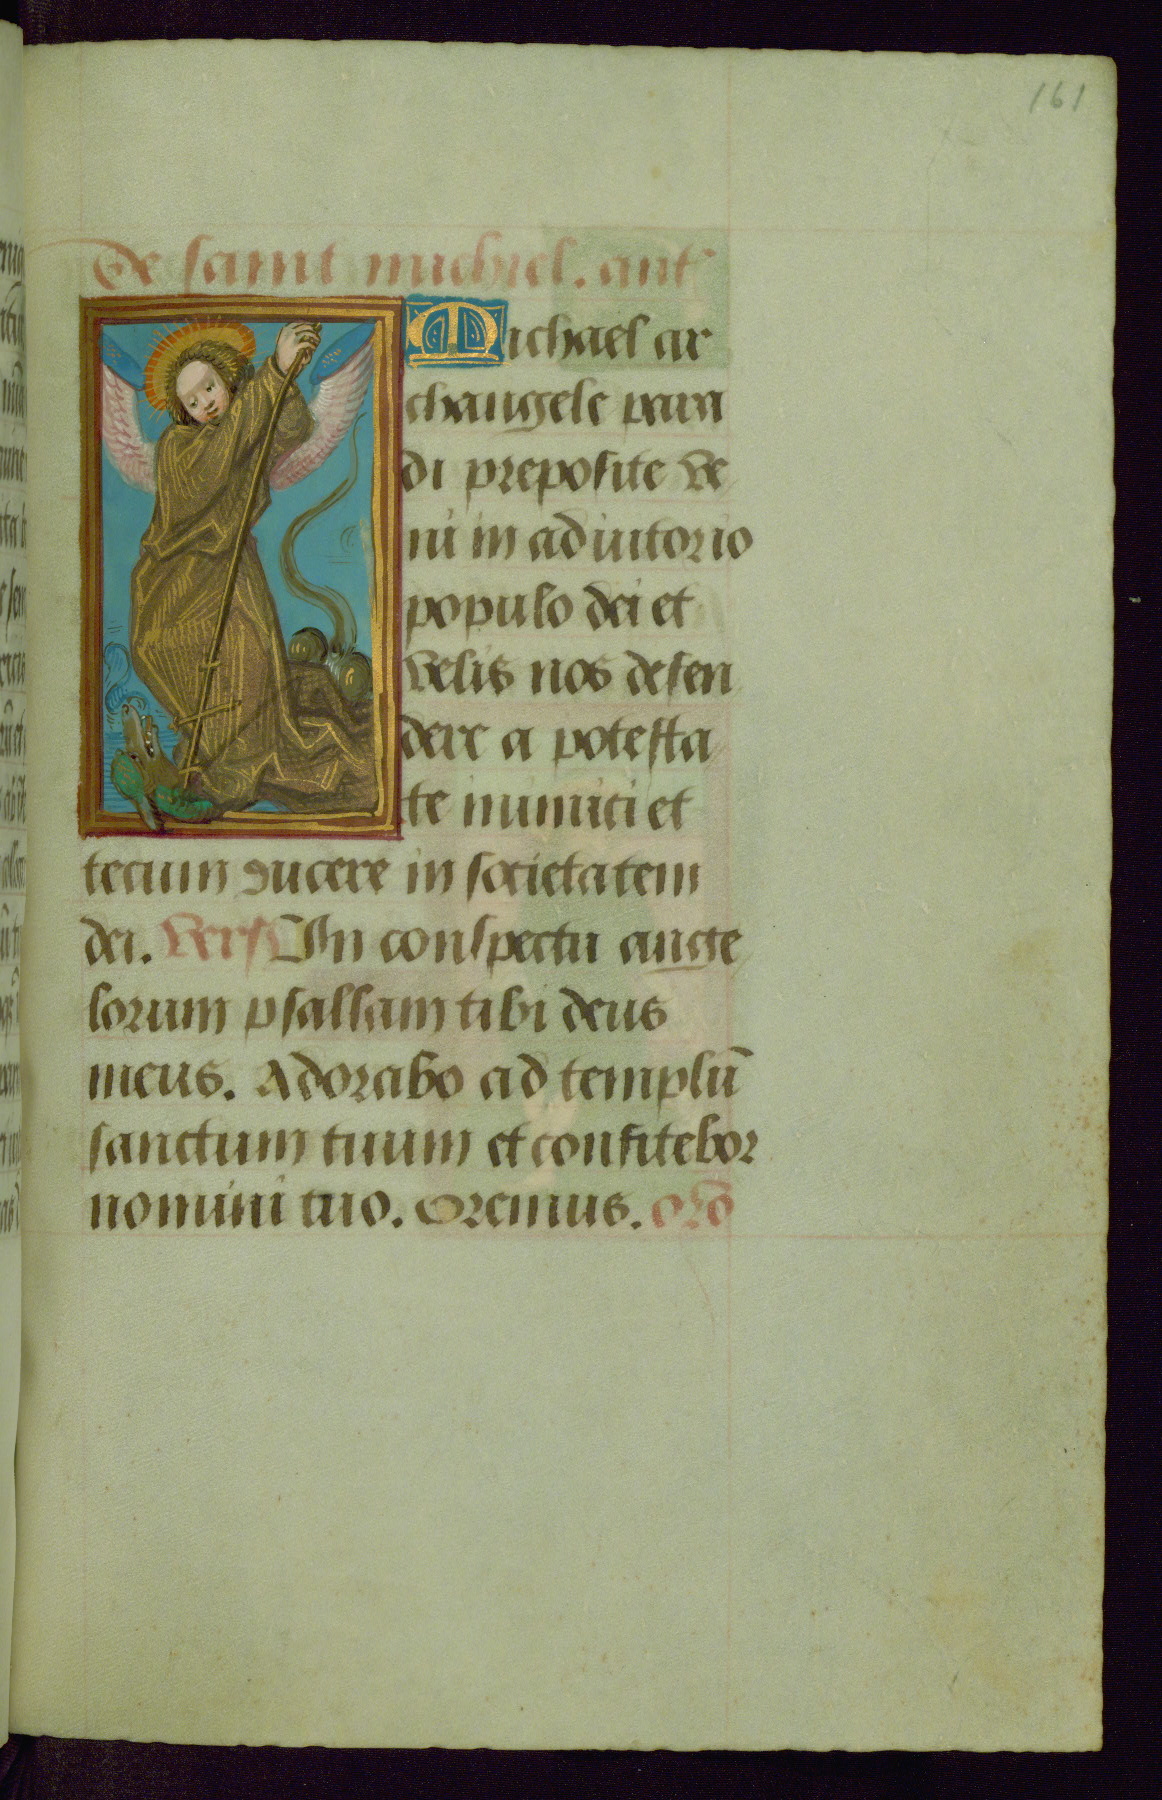 161
De saint michiel. ant'
Michael ar
changele para
di preposite ve
ni in adiutorio
populo dei et
velis nos defen
dere a potesta
te inimici et
tecum ducere in societatem
dei. Vers In conspectu ange
lorum psallam tibi deus
meus. Adorabo ad templū
sanctum tuum et confitebor
nomini tuo. Oremus. orō